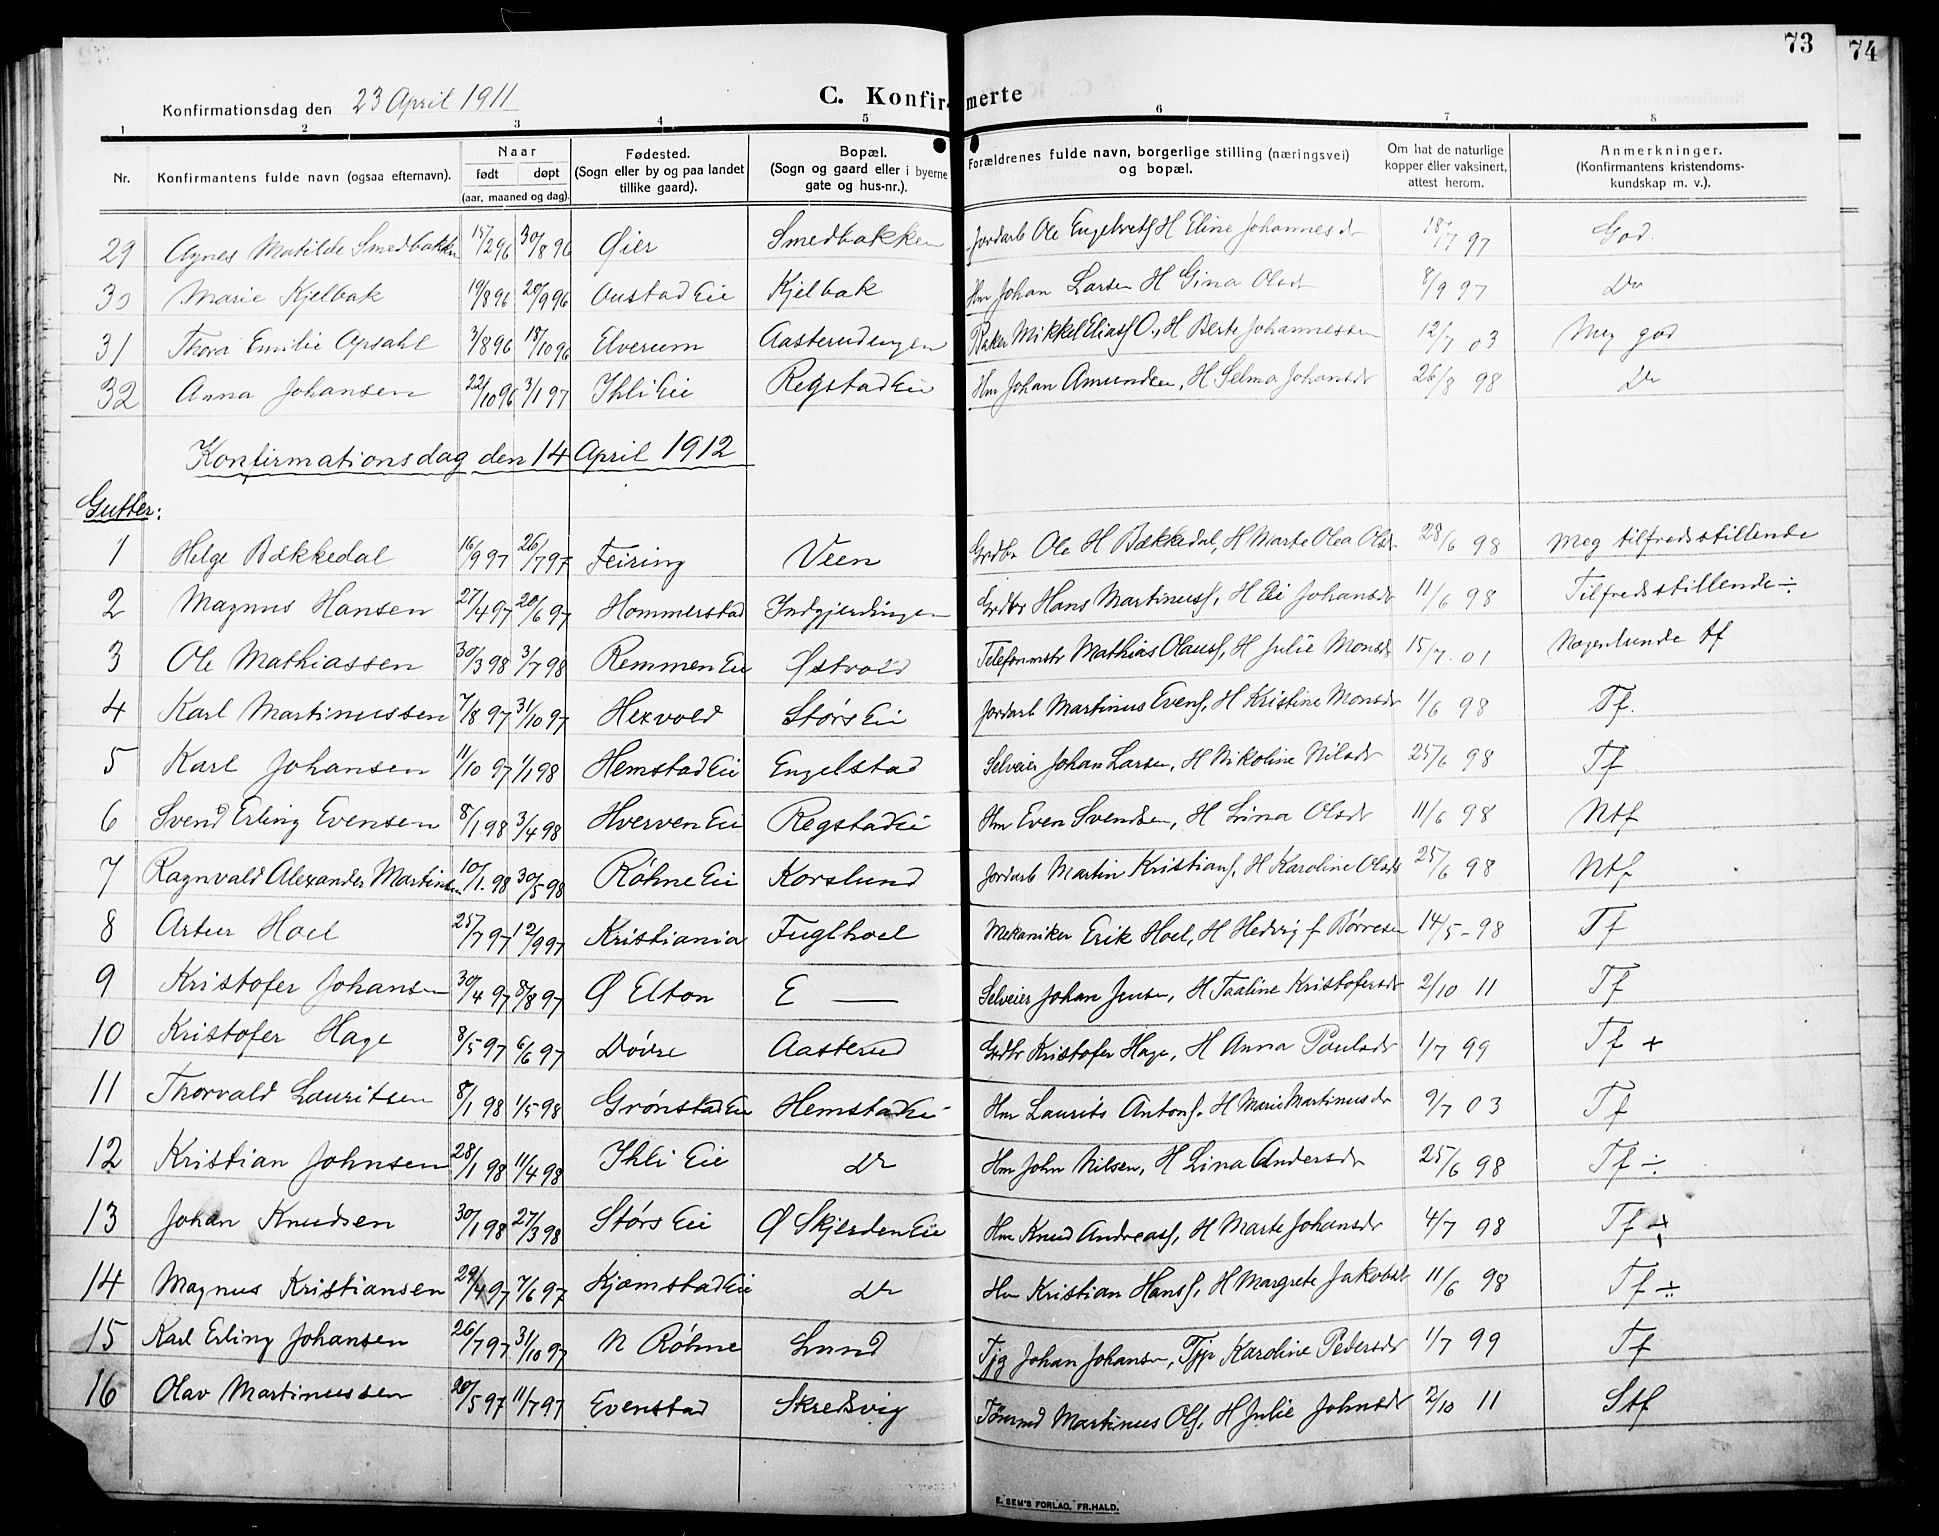 73
74
C. Konfirmerte
Konfirmationsdag den 23 April 1911
1 2 3 4 5 6 7 8
Nr. Konfirmantens fulde navn (ogsaa efternavn). Naar født døpt (aar, maaned og dag). Fødested. (Sogn eller by og paa landet tillike gaard). Bopæl. (Sogn og gaard eller i byerne gate og hus-nr.). Forældrenes fulde navn, borgerlige stilling (næringsvei) og bopæl. Om hat de naturlige kopper eller vaksinert, attest herom. Anmerkninger. (Konfirmantens kristendomskundskap m. v.).
29 Agnes Matilde Smedbakken 15/2 96 30/8 96 Øier Smedbakken Jordarb Ole Engebretsf H Eline Johannesdr 18/7 97 God.
30 Marie Kjelbak 19/8 96 20/9 96 Oustad Eie Kjelbak Hm Johan Larsen H Gina Olsdr 8/9 97 Do
31 Thora Emilie Opsahl 3/8 96 18/10 96 Elverum Aasterudengen Baker Mikkel Eliasf O., H Berte Johannessen 12/7 03 Meg god
32 Anna Johansen 22/10 96 3/1 97 Ihli Eie Regstad Eie Hm Johan Amundsen, H Selma Johansdr 26/8 98 Do
Konfirmationsdag den 14 April 1912
Gutter:
1 Helge Bækkedal 16/9 97 26/7 97 Feiring Veen Grdbr Ole H Bækkedal, H Marte Olea Olsdr 28/6 98 Meg tilfredsstillende
2 Magnus Hansen 27/4 97 20/6 97 Hommerstad Indgjerdingen Grdbr Hans Martinusf, H Eli Johansdr 11/6 98 Tilfredsstillende ÷
3 Ole Mathiassen 30/3 98 3/7 98 Remmen Eie Østvold Telefonmstr Mathias Olausf, H Julie Monsdr 15/7 01 Nogenlunde tf
4 Karl Martinussen 7/8 97 31/10 97 Hexvold Størs Eie Jordarb Martinus Evensf, H Kristine Monsdr 1/6 98 Tf.
5 Karl Johansen 11/10 97 1/1 98 Hemstad Eie Engelstad Selveier Johan Larsen, H Nikoline Nilsdr 25/6 98 Tf
6 Svend Erling Evensen 8/1 98 3/4 98 Hverven Eie Regstad Eie Hm Even Svendsen, H Lina Olsdr 11/6 98 Ntf
7 Ragnvald Alexander Martinsen 10/1 98 30/5 98 Røhne Eie Korslund Jordarb Martin Kristiansf, H Karoline Olsdr 25/6 98 Ntf
8 Artur Hoel 25/7 97 12/9 97 Kristiania Fuglhoel Mekaniker Erik Hoel, H Hedvig f Børresen 14/5 - 98 Tf
9 Kristofer Johansen 30/4 97 8/8 97 Ø Elton E — Selveier Johan Jensen, H Taaline Kristofersdr 2/10 11 Tf
10 Kristofer Hage 8/5 97 6/6 97 Dovre Aasterud Grdbr Kristofer Hage, H Anna Paulsdr 1/7 99 Tf +
11 Thorvald Lauritsen 8/1 98 1/5 98 Grønstad Eie Hemstad Eie Hm Laurits Antonsf. H Marie Martinusdr 9/7 03 Tf
12 Kristian Johnsen 28/1 98 11/4 98 Ihli Eie Do Hm John Nilsen, H Lina Andersdr 25/6 98 Tf ÷
13 Johan Knudsen 30/1 98 27/3 98 Størs Eie Ø Skjerden Eie Hm Knud Andreasf, H Marte Johansdr 4/7 98 Tf ÷
14 Magnus Kristiansen 29/4 97 7/6 97 Kjæmstad Eie Do Hm Kristian Hansf, H Margrete Jakobsdr 11/6 98 Tf ÷
15 Karl Erling Johansen 26/7 97 31/10 97 N Røhne Lund Tjg Johan Johansen, Tjp Karoline Pedersdr 1/7 99 Tf
16 Olav Martinussen 20/5 97 11/7 97 Evenstad Skredsvig Tømmd Martinus Olsf, H Julie Johnsdr 2/10 11 Stf
E. SEM'S FORLAG, FR.HALD.